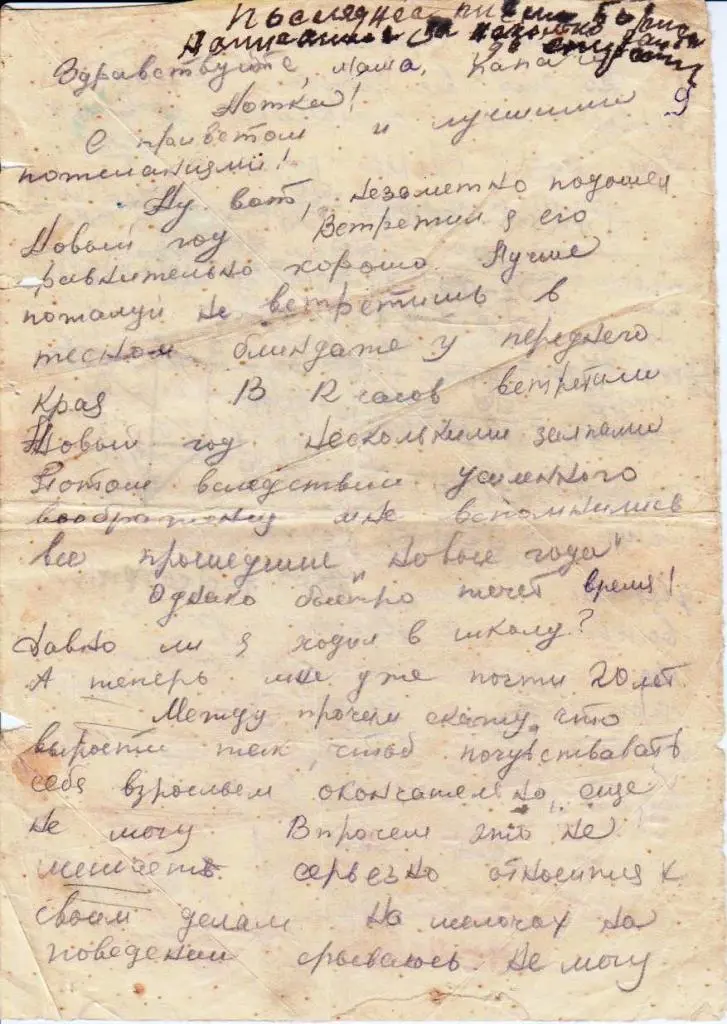 Последнее письмо Бориса
написанное за несколько дней
до смерти
Здравствуйте, мама, папа и
Нотка!
9
С приветом и лучшими
пожеланиями!
Ну вот, незаметно подошел
Новый год Встретил я его
сравнительно хорошо Лучше
пожалуй не встретишь в
тесном блиндаже у переднего
края В 12 часов встретили
Новый год несколькими залпами
Потом вследствии усиленного
воображения мне вспомнились
все прошедшие "новые года"
Однако быстро течет время!
Давно ли я ходил в школу?
А теперь мне уже почти 20 лет
Между прочем скажу, что
вырости так, чтоб почувствавать
себя взрослым окончательно, еще
не могу Впрочем это не
мешает серьезно относится к
своим делам Но мелочах на
поведении срываюсь. Не могу